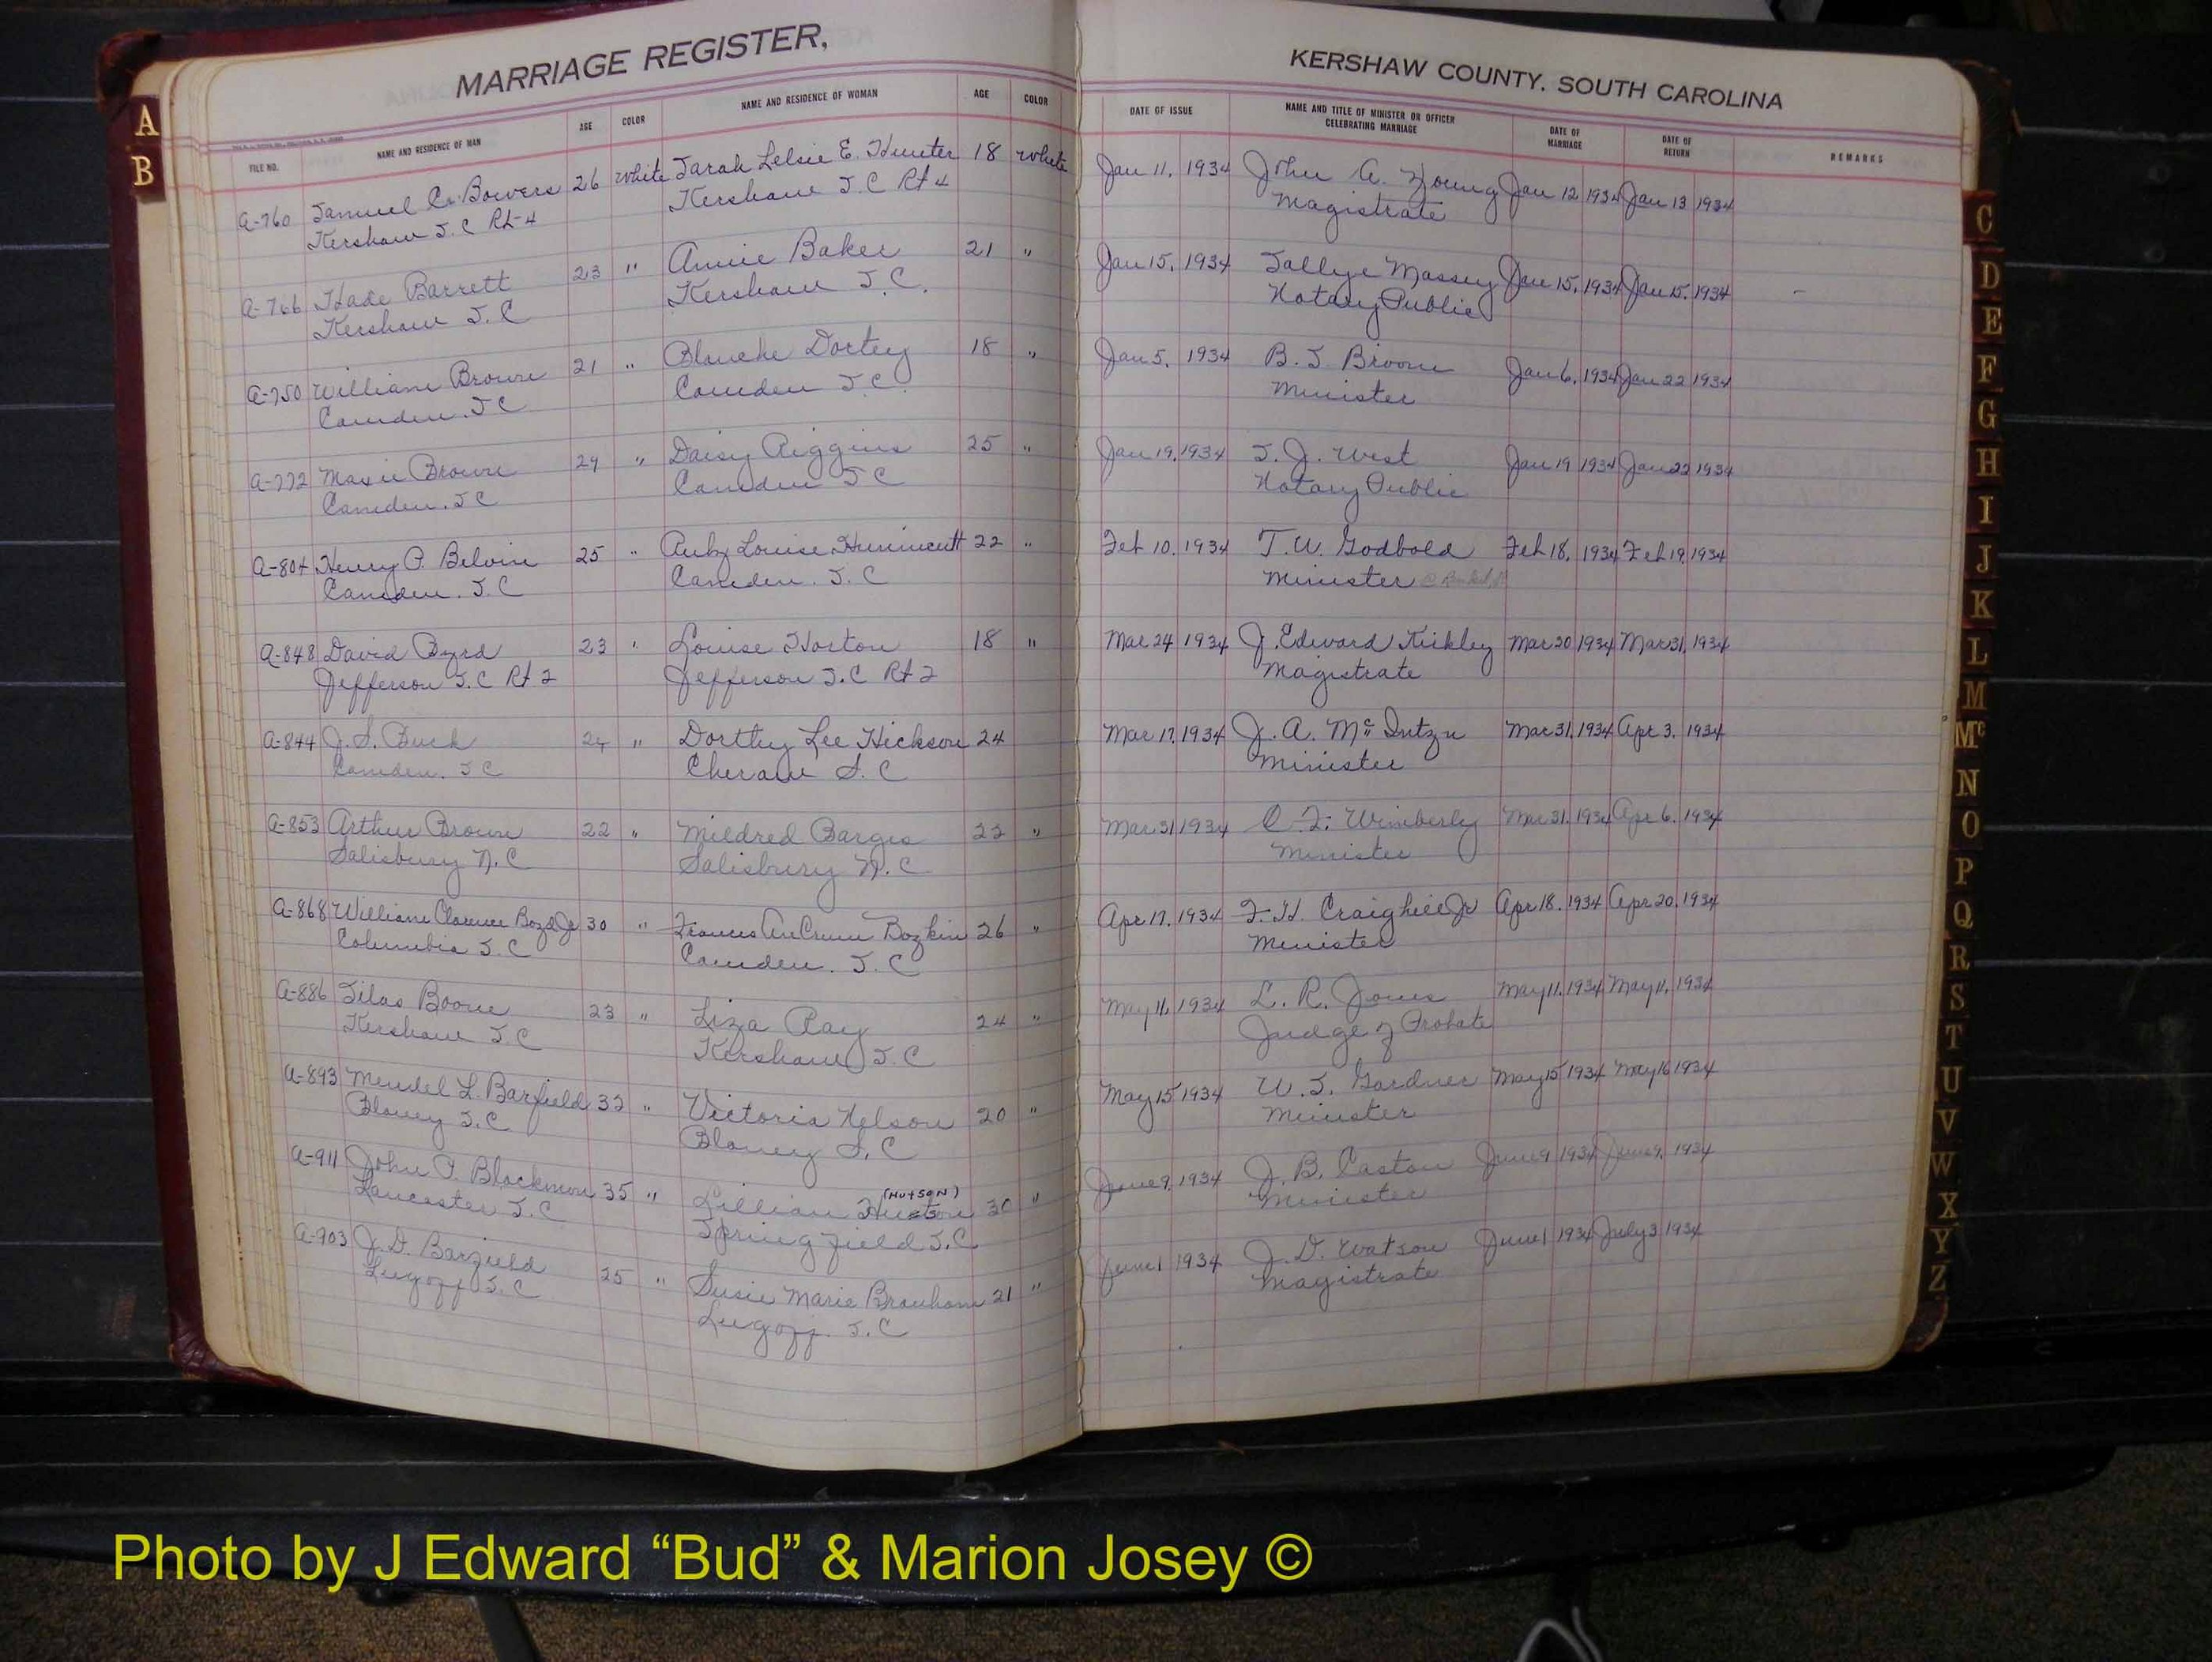 MARRIAGE REGISTER,
KERSHAW COUNTY, SOUTH CAROLINA
FILE NO. NAME AND RESIDENCE OF MAN AGE COLOR NAME AND RESIDENCE OF WOMAN AGE COLOR DATE OF ISSUE NAME AND TITLE OF MINISTER OR OFFICER CELEBRATING MARRIAGE DATE OF MARRIAGE DATE OF RETURN REMARKS
A-760 Samuel C. Bowers 26 White Sarah Lelsie E. Hunter 18 White Jan 11, 1934 John A. Young Jan 12 1934 Jan 13 1934
Kershaw S.C Rt-4 Kershaw S.C Rt 4 Magistrate
A-766 Hade Barrett 23 " Annie Baker 21 " Jan 15, 1934 Sallye Massey Jan 15, 1934 Jan 15, 1934 -
Kershaw S.C Kershaw S.C. Notary Public
A-750 William Brown 21 " Blanche Dortey 18 " Jan 5, 1934 B.S Broom Jan 6, 1934 Jan 22 1934
Camden. S C Camden S.C. Minister
A-772 Maxie Brown 24 " Daisy Riggins 25 " Jan 19, 1934 S. J. West Jan 19 1934 Jan 22 1934
Camden. S C Camden S C Notary Public
A-804 Henry P. Belvin 25 " Ruby Louise Hunnicutt 22 " Feb 10, 1934 T.W. Godbold Feb 18, 1934 Feb 19, 1934
Camden. S.C Camden. S.C Minister
A-848 David Byrd 23 " Louise Horton 18 " Mar 24 1934 J. Edward Kirkley Mar 20 1934 Mar 31, 1934
Jefferson S.C Rt 2 Jefferson S.C Rt 2 Magistrate
A-844 J. S. Buck 24 " Dorthy Lee Hickson 24 Mar 17, 1934 J. A. Mc Mar 31, 1934 Apr 3, 1934
Camden. S C Cheraw S. C Minister
A-853 Arthur Brown 22 " Mildred Barges 22 " Mar 31 1934 Wimberly Mar 31, 1934 Apr 6, 1934
Salisbury N.C Salisbury N.C Minister
A-868 William Clarence Boyd Jr 30 " Frances AnCrum Boykin 26 " Apr 17, 1934 F. H. Craighill Jr Apr 18, 1934 Apr 20, 1934
Columbia S.C Camden. S.C Minister
A-886 Silas Boone 23 " Liza Ray 24 " May 11, 1934 L. R. Jones May 11, 1934 May 11, 1934
Kershaw S.C Kershaw S.C Judge of Probate
A-893 Mendel L. Barfield 32 " Victoria Nelson 20 " May 15 1934 W. S. Gardner May 15 1934 May 16 1934
Blaney S.C Blaney S.C Minister
A-911 John P. Blackmon 35 " Lillian (HUTSON) 30 " June 9, 1934 J. B. Caston June 9 1934 June 9, 1934
Lancaster S.C Springfield S.C Minister
A-903 J. D. Barfield 25 " Susie Marie Branham 21 " June 1 1934 J. D. Watson June 1 1934 July 3 1934
Lugoff S.C Lugoff. S.C Magistrate
A
B
C
D
E
F
G
H
I
J
K
L
M
Mc
N
O
P
Q
R
S
T
U
V
W
X
Y
Z
Photo by J Edward “Bud” & Marion Josey ©